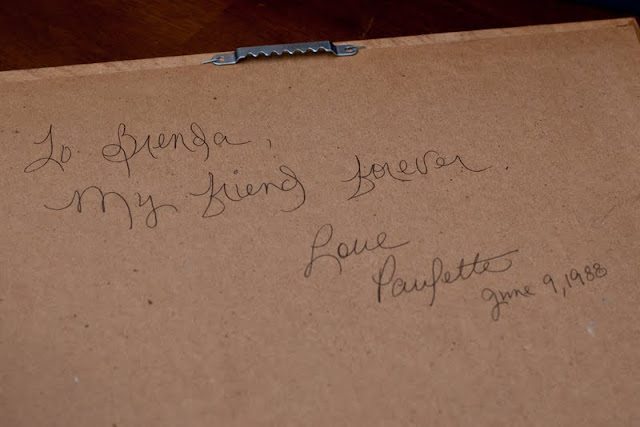 To Brenda,
My friend forever.
Love
Paulette
June 9, 1988